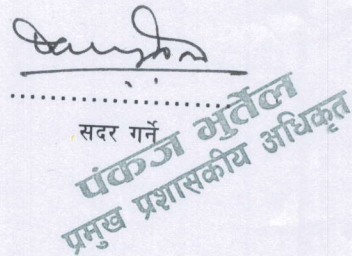 ....................
सदर गर्ने
पंकज भुर्तेल
प्रमुख प्रशासकीय अधिकृत